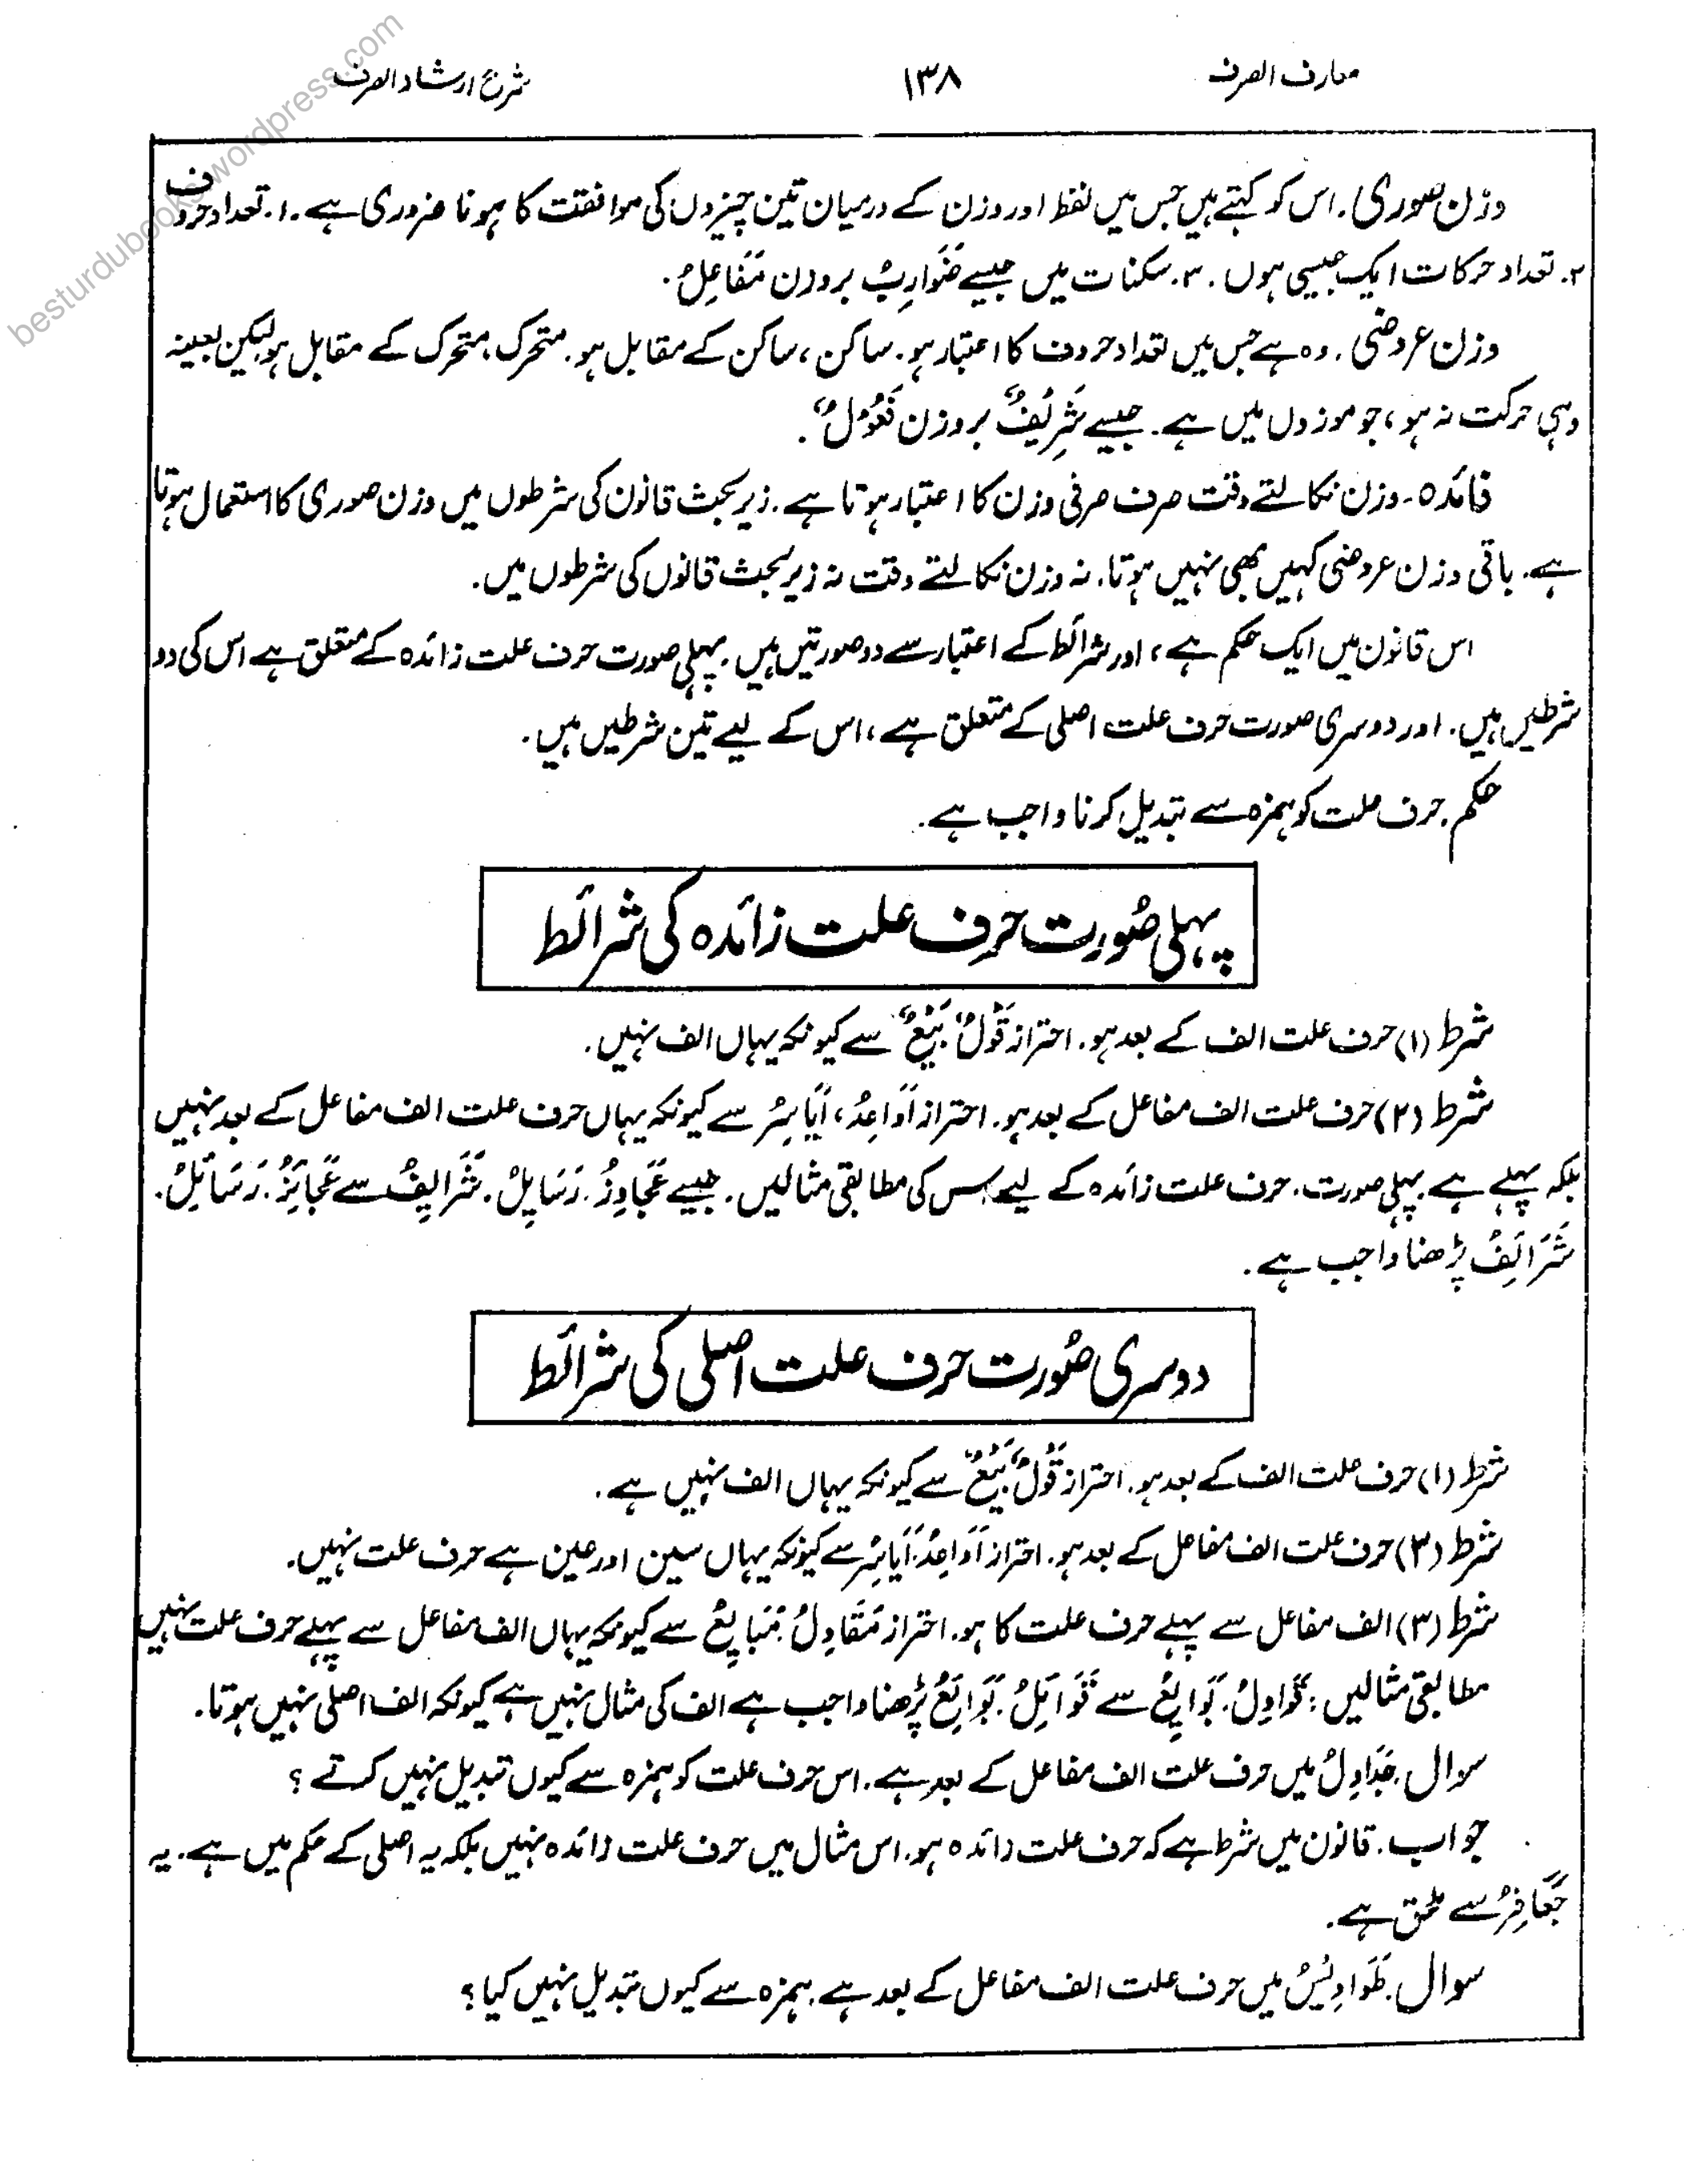 معارف الصرف
۱۳۸
شرح ارشاد الصرف
besturdubooks.wordpress.com
وزن صوری. اس کو کہتے ہیں جس میں لفظ اور وزن کے درمیان تین چیزوں کی موافقت کا ہونا ضروری ہے۔ ۱. تعداد حروف
۲. تعداد حرکات ایک جیسی ہوں. ۳. سکنات میں جیسے ضَوَارِبُ بروزن مَفَاعِلُ.
وزن عروضی. وہ ہے جس میں تعداد حروف کا اعتبار ہو. ساکن، ساکن کے مقابل ہو. متحرک، متحرک کے مقابل ہو لیکن بعینہ
وہی حرکت نہ ہو، جو موزوں میں ہے. جیسے شَرِيْفٌ بروزن فَعُوْلٌ.
فائدہ۔ وزن نکالتے وقت صرف صرفی وزن کا اعتبار ہوتا ہے. زیر بحث قانون کی شرطوں میں وزن صوری کا استعمال ہوتا
ہے. باقی وزن عروضی کہیں بھی نہیں ہوتا. نہ وزن نکالتے وقت نہ زیر بحث قانوں کی شرطوں میں.
اس قانون میں ایک حکم ہے، اور شرائط کے اعتبار سے دو صورتیں ہیں. پہلی صورت حرف علت زائدہ کے متعلق ہے اس کی دو
شرطیں ہیں. اور دوسری صورت حرف علت اصلی کے متعلق ہے، اس کے لیے تین شرطیں ہیں.
حکم. حرف علت کو ہمزہ سے تبدیل کرنا واجب ہے.
پہلی صُورت حرفِ علت زائدہ کی شرائط
شرط (۱) حرف علت الف کے بعد ہو. احتراز قَوْلٌ، بَيْعٌ سے کیونکہ یہاں الف نہیں.
شرط (۲) حرف علت الف مفاعل کے بعد ہو. احتراز اَوَاعِدُ، اَيَاسِرُ سے کیونکہ یہاں حرف علت الف مفاعل کے بعد نہیں
بلکہ پہلے ہے. پہلی صورت. حرف علت زائدہ کے لیے اس کی مطابقی مثالیں. جیسے عَجَاوِزُ. رَسَايِلُ. شَرَايِفُ سے عَجَائِزُ. رَسَائِلُ.
شَرَائِفُ پڑھنا واجب ہے.
دوسری صُورت حرف علت اصلی کی شرائط
شرط (۱) حرف علت الف کے بعد ہو. احتراز قَوْلٌ بَيْعٌ سے کیونکہ یہاں الف نہیں ہے.
شرط (۲) حرف علت الف مفاعل کے بعد ہو. احتراز اَوَاعِدُ، اَيَاسِرُ سے کیونکہ یہاں سین اور عین ہے حرف علت نہیں.
شرط (۳) الف مفاعل سے پہلے حرف علت کا ہو. احتراز مَقَاوِلُ. مَبَايِعُ سے کیونکہ یہاں الف مفاعل سے پہلے حرف علت نہیں
مطابقی مثالیں: قَوَاوِلُ. بَوَايِعُ سے قَوَائِلُ. بَوَائِعُ پڑھنا واجب ہے الف کی مثال نہیں ہے کیونکہ الف اصلی نہیں ہوتا.
سوال. جَدَاوِلُ میں حرف علت الف مفاعل کے بعد ہے. اس حرف علت کو ہمزہ سے کیوں تبدیل نہیں کرتے؟
جواب. قانون میں شرط ہے کہ حرف علت زائدہ ہو. اس مثال میں حرف علت زائدہ نہیں بلکہ یہ اصلی کے حکم میں ہے. یہ
جَعَافِرُ سے ملحق ہے.
سوال. طَوَاوِيْسُ میں حرف علت الف مفاعل کے بعد ہے. ہمزہ سے کیوں تبدیل نہیں کیا؟